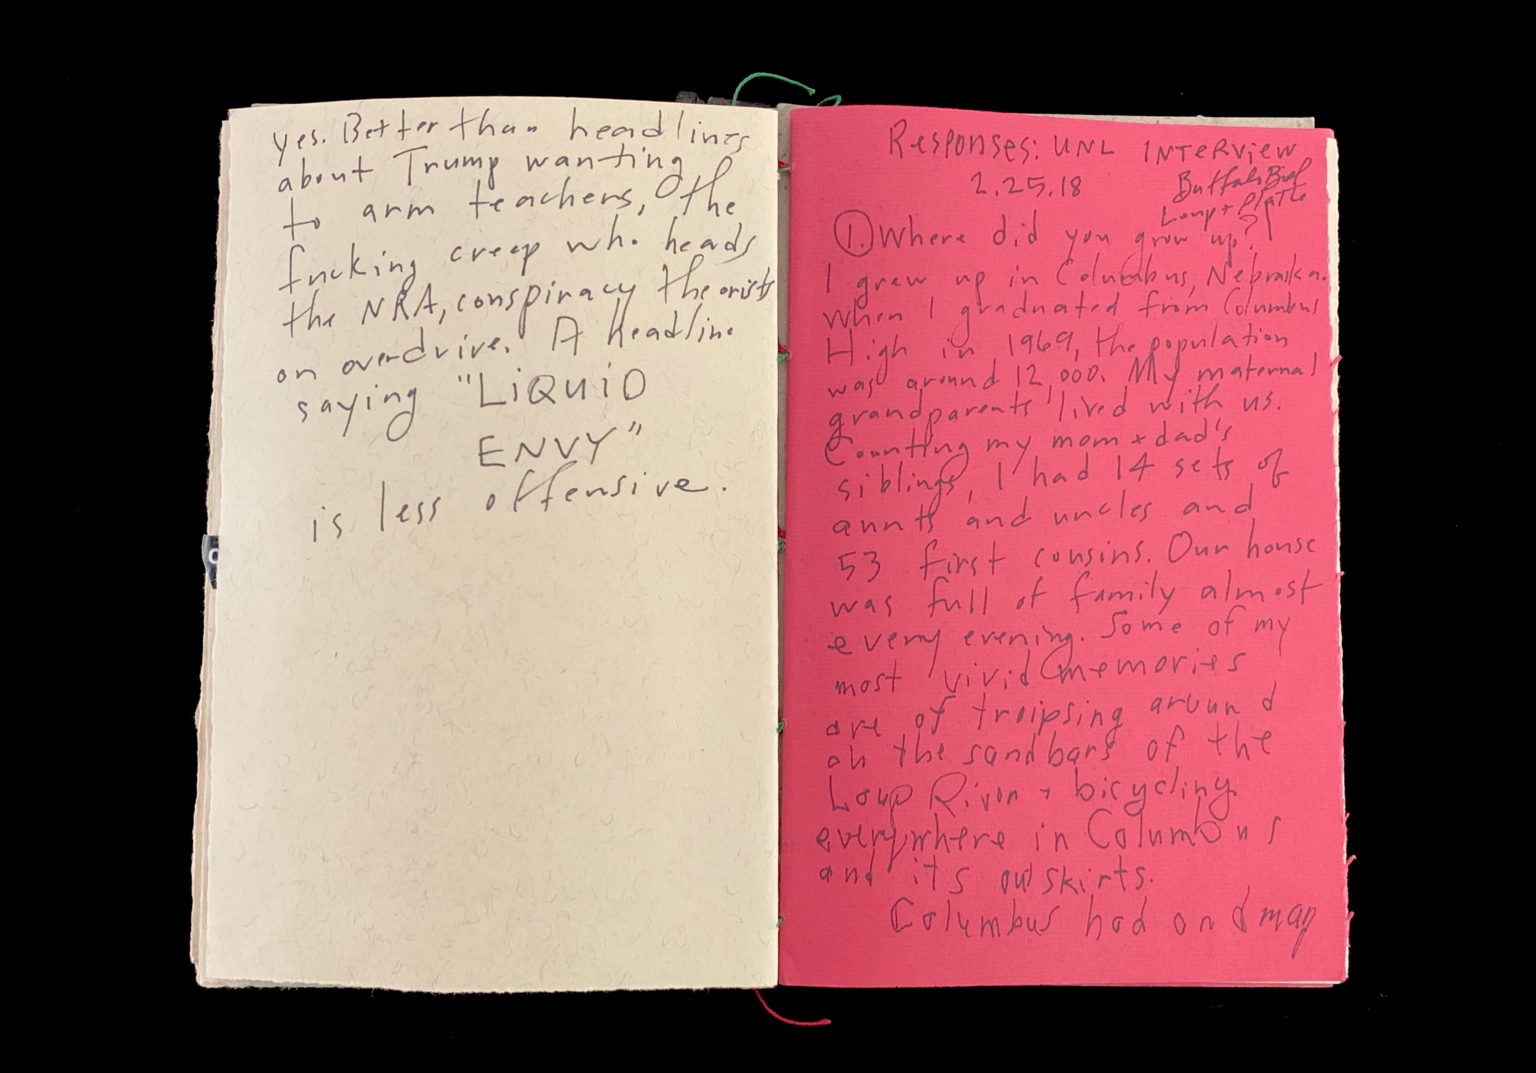 yes. Better than headlines
about Trump wanting
to arm teachers, the
fucking creep who heads
the NRA, conspiracy theorists
on overdrive. A headline
saying "LiQUiD
ENVY"
is less offensive.
Responses: UNL INTERVIEW
2.25.18
Buffalo Bill
Loup + Platte
1. Where did you grow up?
I grew up in Columbus, Nebraska.
When I graduated from Columbus
High in 1969, the population
was around 12,000. My maternal
grandparents lived with us.
Counting my mom + dad's
siblings, I had 14 sets of
aunts and uncles and
53 first cousins. Our house
was full of family almost
every evening. Some of my
most vivid memories
are of traipsing around
on the sandbars of the
Loup River + bicycling
everywhere in Columbus
and its outskirts.
Columbus had and